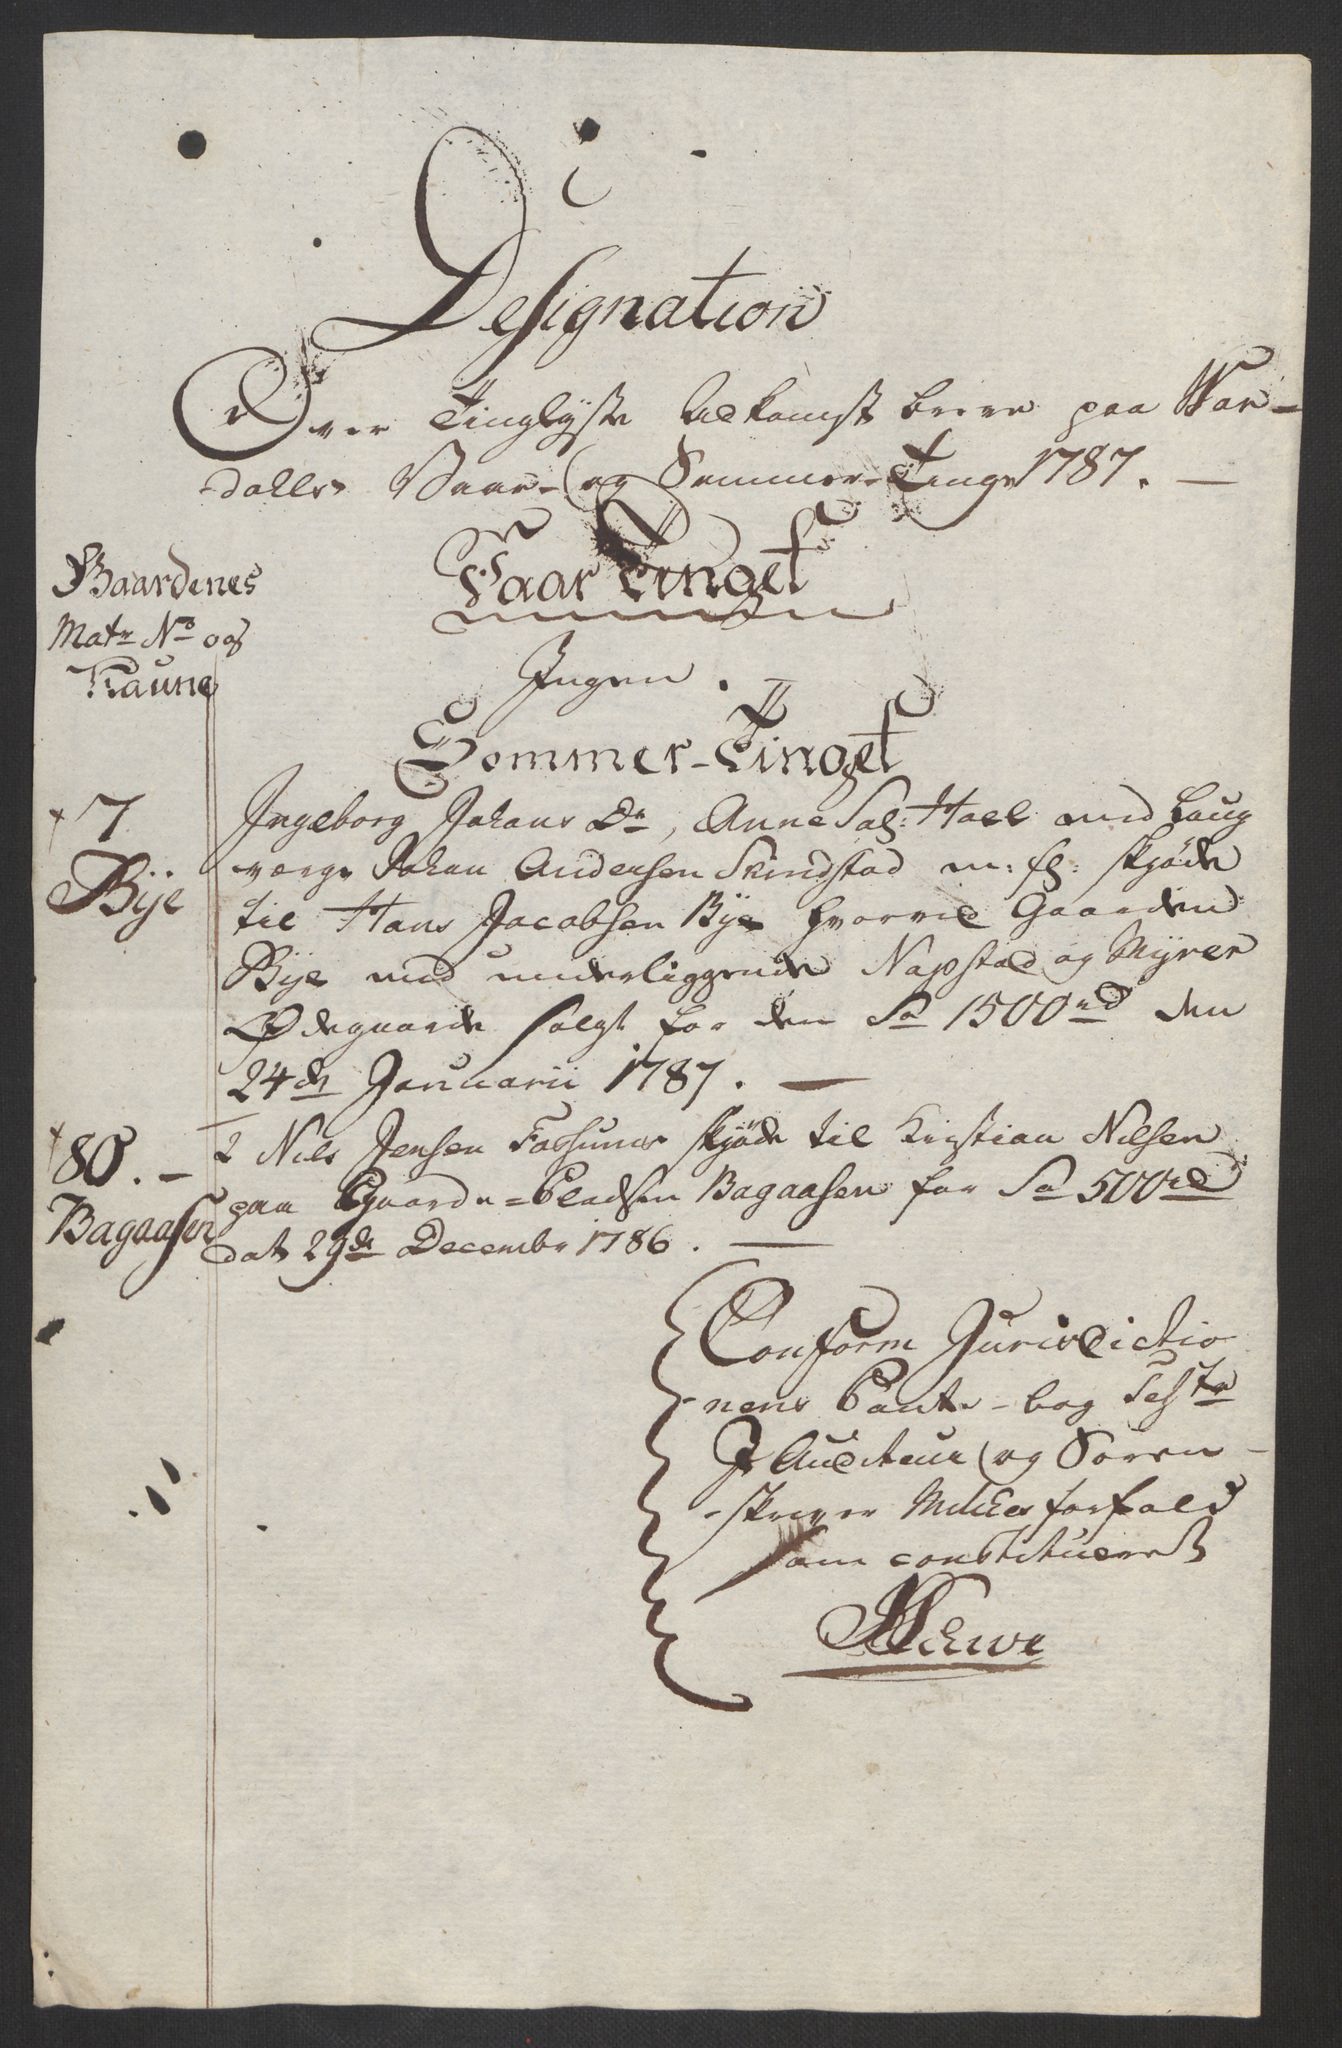 Designation
Over Tinglyste Adkomst breve paa War-
dahls Vaar- og Sommer-Tinge 1787. —
Vaar Tinget
Gaardenes
Matr No og
Naune
Ingen.
Sommer-Tinget
7
Bye
Ingeborg Johans Dr, Anne Sal: Hoel med Laug
værge Johan Andersen Skindstad m: fl: skjøde
til Hans Jacobsen Bye hvorved Gaarden
Bye med underliggende Napstad og Myrer
Ødegaarde solgt for den Sa 1500 rd den
24de Januarii 1787. —
80. —
Bagaasen
2 Nils Jensen Fossums skjøde til Kirstian Nilsen
paa Gaarde-Pladsen Bagaasen for Sa 500 rd
dat 29de Decembr 1786. —
Conform Jurisdictio
nens Pante-bog Testr
I Auditeur og Soren-
skriver forfald
som constitueret